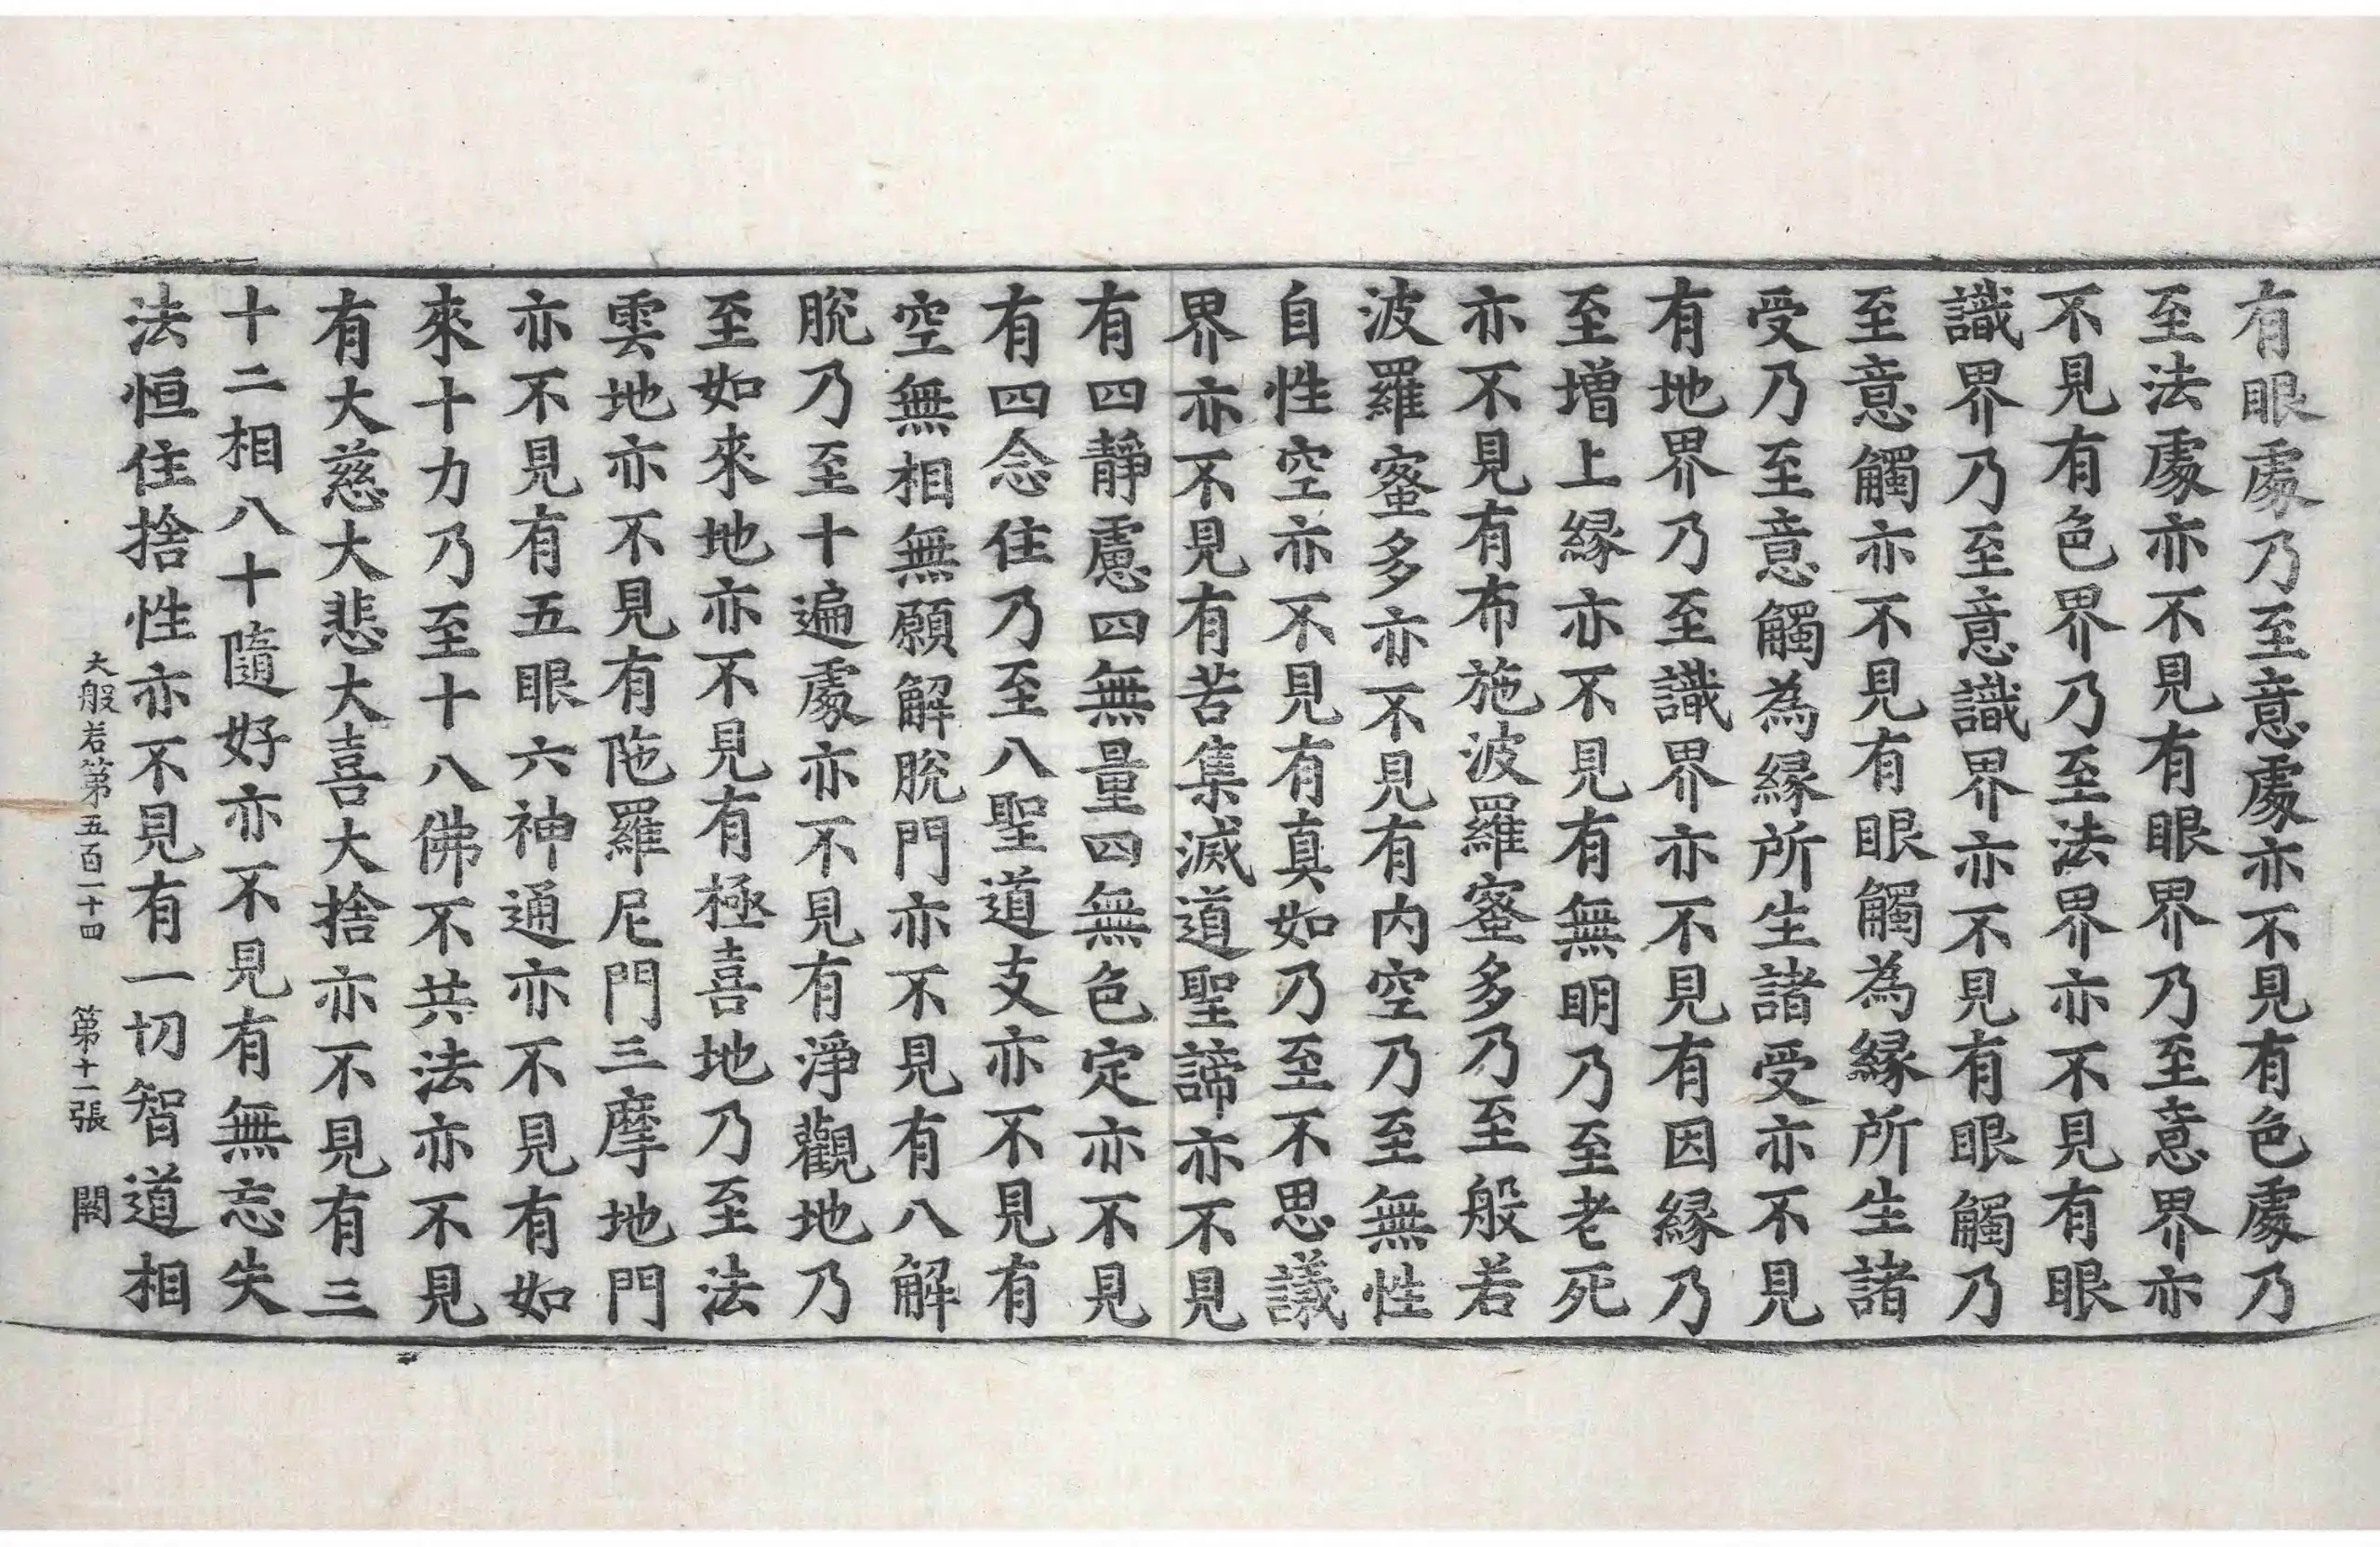 有眼處乃至意處亦不見有色處乃
至法處亦不見有眼界乃至意界亦
不見有色界乃至法界亦不見有眼
識界乃至意識界亦不見有眼觸乃
至意觸亦不見有眼觸為緣所生諸
受乃至意觸為緣所生諸受亦不見
有地界乃至識界亦不見有因緣乃
至增上緣亦不見有無明乃至老死
亦不見有布施波羅蜜多乃至般若
波羅蜜多亦不見有內空乃至無性
自性空亦不見有真如乃至不思議
界亦不見有苦集滅道聖諦亦不見
有四靜慮四無量四無色定亦不見
有四念住乃至八聖道支亦不見有
空無相無願解脫門亦不見有八解
脫乃至十遍處亦不見有淨觀地乃
至如來地亦不見有極喜地乃至法
雲地亦不見有陁羅尼門三摩地門
亦不見有五眼六神通亦不見有如
來十力乃至十八佛不共法亦不見
有大慈大悲大喜大捨亦不見有三
十二相八十隨好亦不見有無忘失
法恒住捨性亦不見有一切智道相
大般若第五百一十四 第十一張 闕